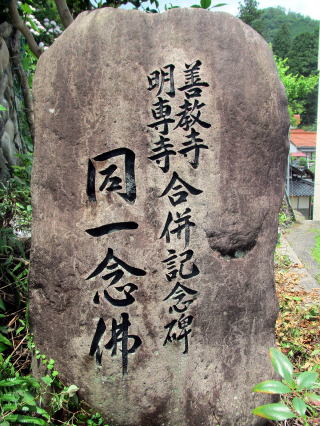 善教寺
明専寺
合併記念碑
同一念佛